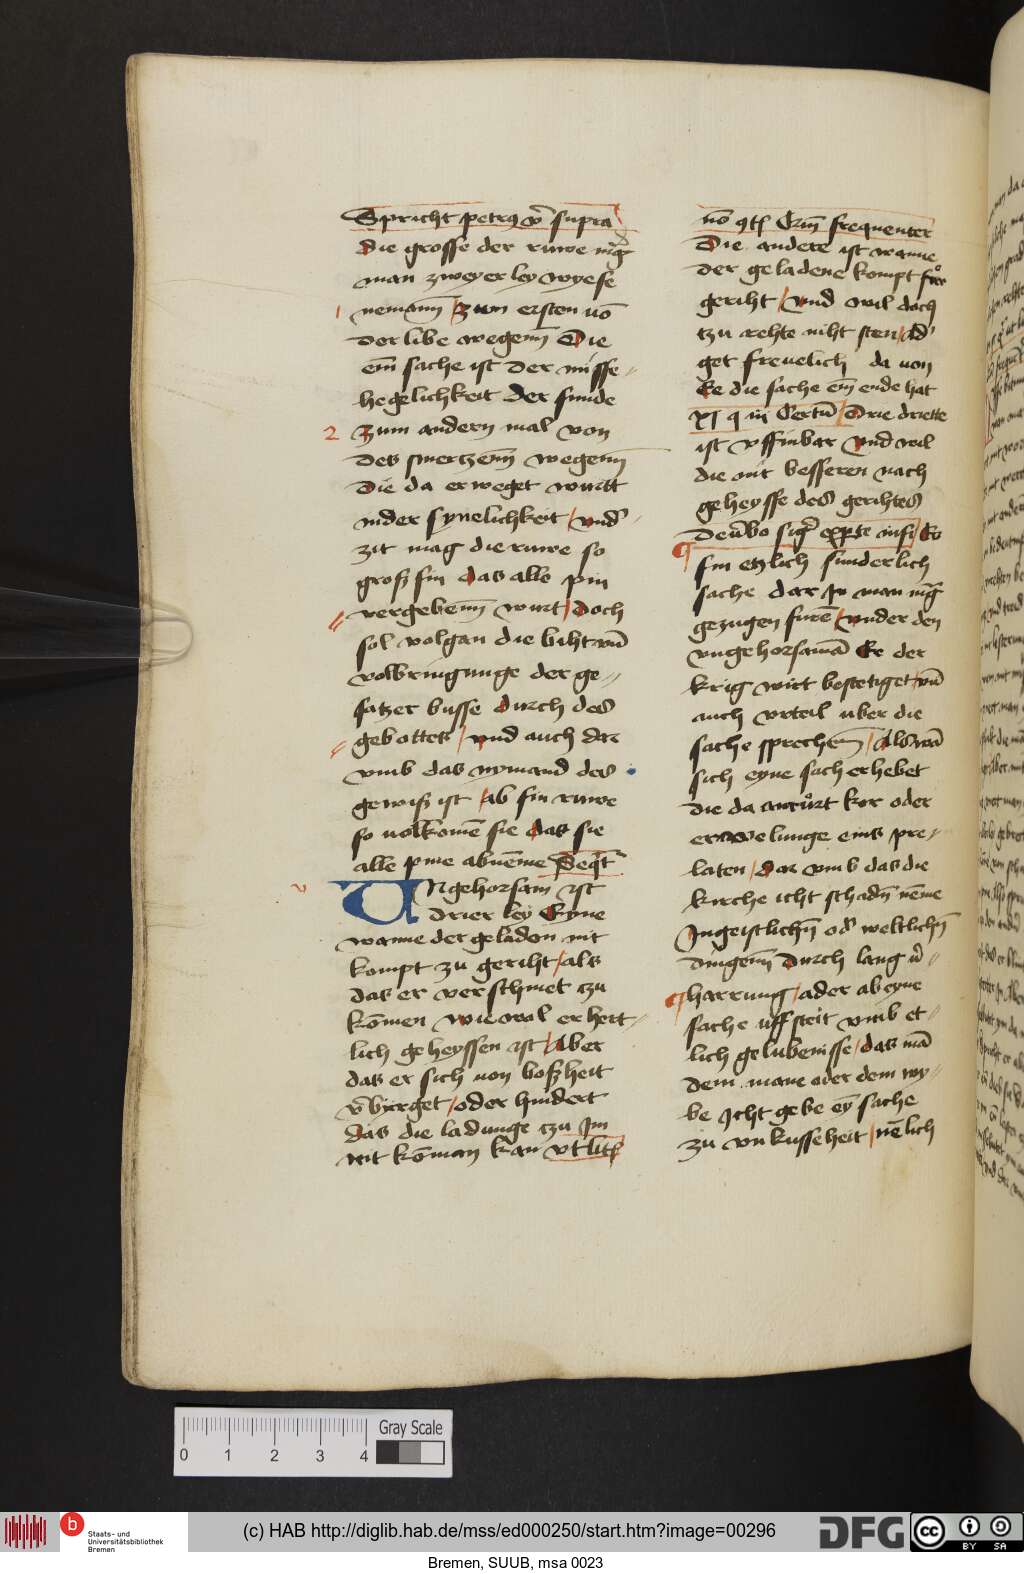 Spricht petrus vͤ supra
die grosse der ruwe mag
man zweyerley wyese
nemann / zum ersten uō
der libe wegenn Die
ein sache ist der misse-
hegelichkeit der sunde
2 zum andern mal von
des smertzenn wegenn
die da erweget wurtt
inder synelichkeit / und
zit mag die ruwe so
groß sin das alle pin
vergebenn wurt / doch
sol volgan die biht vñ
volbringunge der ge-
satzer busse durch des
gebottes / und auch dar
vmb das nymand des
gewiß ist / ab sin ruwe
so uolkomē sie das sie
alle pine abnēme Seqt
v
UNgehorsam ist
drier ley Eyne
wanne der geladen nit
kompt zu geriht / als
das er verschmet tzu
kōmen wie wol er hert-
lich geheyssen ist / Aber
das er sich uon boßheit
v̄birget / oder hindert
das die ladunge tzu Im
nit kōman kan vt lits
uō Crim frequenter
Die andere ist wanne
der geladene kompt fur
geriht / und wil doch
tzu rehte niht sten / ad
get freuelich da uon
Ee die sache ein ende hat
XI q iij Certū / Drie driette
ist vffinbar vnd wil
die mit besseren nach
geheysse des gerihtes
de v̄bo sigͤ
Es
sin etzlich sunderlich
sache dar In man mag
gezugen furē / under den
vngehorsamā Ee der
krig wirt bestetiget / vñ
auch vrteil uber die
sache sprechenn / Als wā
sich eyne sach erhebet
die da anrůrt kor oder
erwelunge eins pre-
laten / dar vmb das die
kirche icht schadn nēme
In geistlichn od weltlichn
dingenn durch lang v̄-
harrung / ader ab eyne
sache uff steit vmb et-
lich gelubenisse / das mā
dem mane oder dem wy-
be Icht gebe ey sache
zu vnkusseheit / nēlich
0 1 2 3 4
Gray Scale
b
Staats- und
Universitätsbibliothek
Bremen
(c) HAB http://diglib.hab.de/mss/ed000250/start.htm?image=00296
DFG
cc
BY SA
Bremen, SUUB, msa 0023